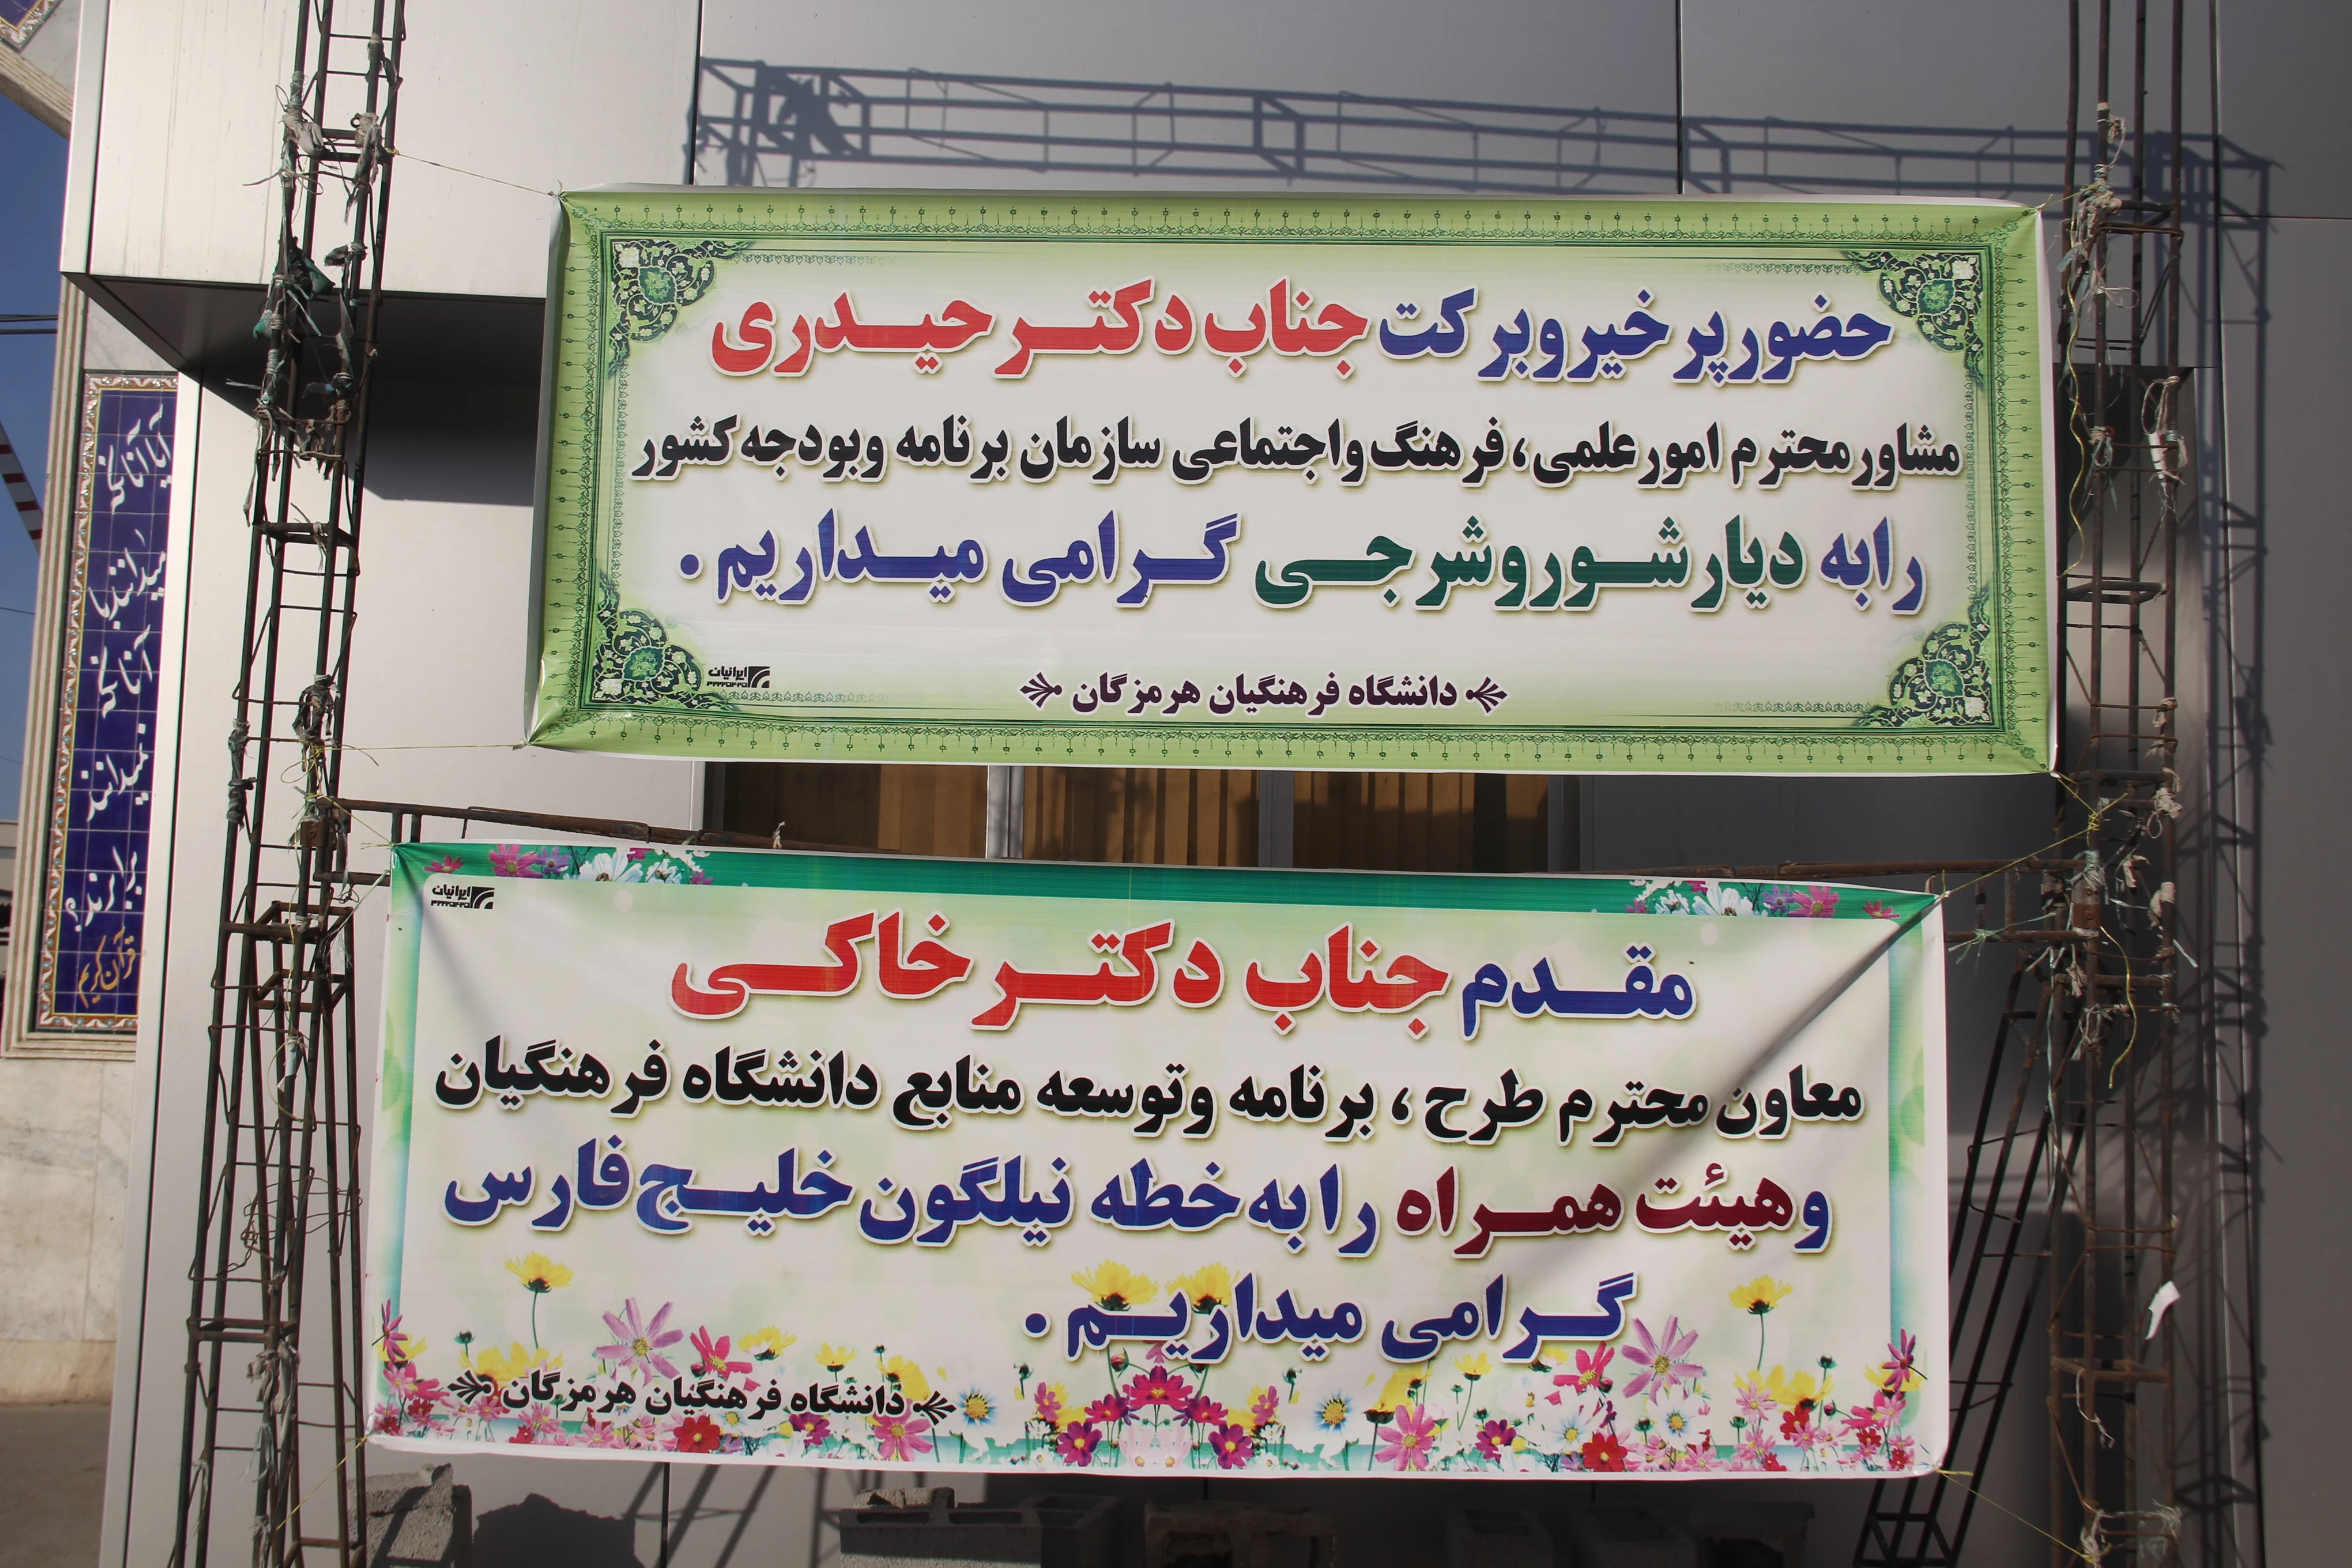 حضور پر خیر و برکت جناب دکتر حیدری
مشاور محترم امور علمی، فرهنگ و اجتماعی سازمان برنامه و بودجه کشور
را به دیار شور و شرجی گرامی میداریم .
دانشگاه فرهنگیان هرمزگان
ایرانیان
ایرانیان
مقدم جناب دکتر خاکی
معاون محترم طرح ، برنامه و توسعه منابع دانشگاه فرهنگیان
و هیئت همراه را به خطه نیلگون خلیج فارس
گرامی میداریم .
دانشگاه فرهنگیان هرمزگان
آیا آنانکه
میدانند با
آنانکه
نمیدانند
برابرند؟
قرآن کریم